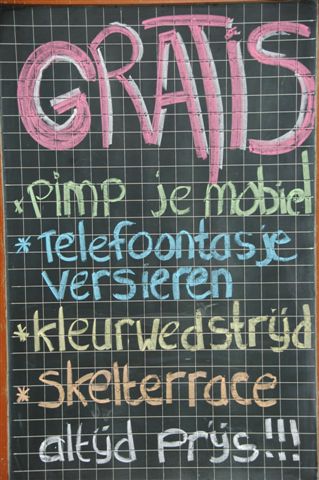 GRATIS
* Pimp je mobiel
* Telefoontasje
versieren
* kleurwedstrijd
* Skelterrace
altijd prijs!!!